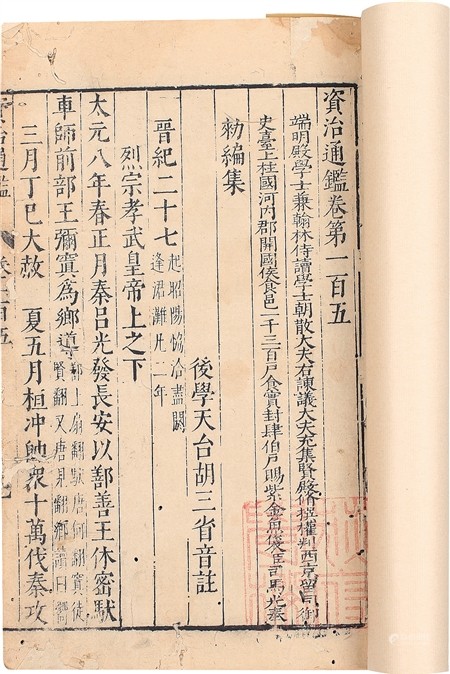 資治通鑑卷第一百五
端明殿學士兼翰林侍讀學士朝散大夫右諫議大夫充集賢殿脩撰權判西京留司御
史臺上柱國河內郡開國侯食邑一千三百戶食實封肆伯戶賜紫金魚袋臣司馬光奉
勑編集
後學天台胡三省音註
晉紀二十七
起昭陽協洽盡閼
逢涒灘凡二年
烈宗孝武皇帝上之下
太元八年春正月秦呂光發長安以鄯善王休密馱
車師前部王彌窴爲鄉導
鄯上扇翻馱唐何翻窴徒
賢翻又唐見翻鄉讀曰嚮
三月丁巳大赦 夏五月桓冲帥衆十萬伐秦攻
資治通鑑
卷一百五